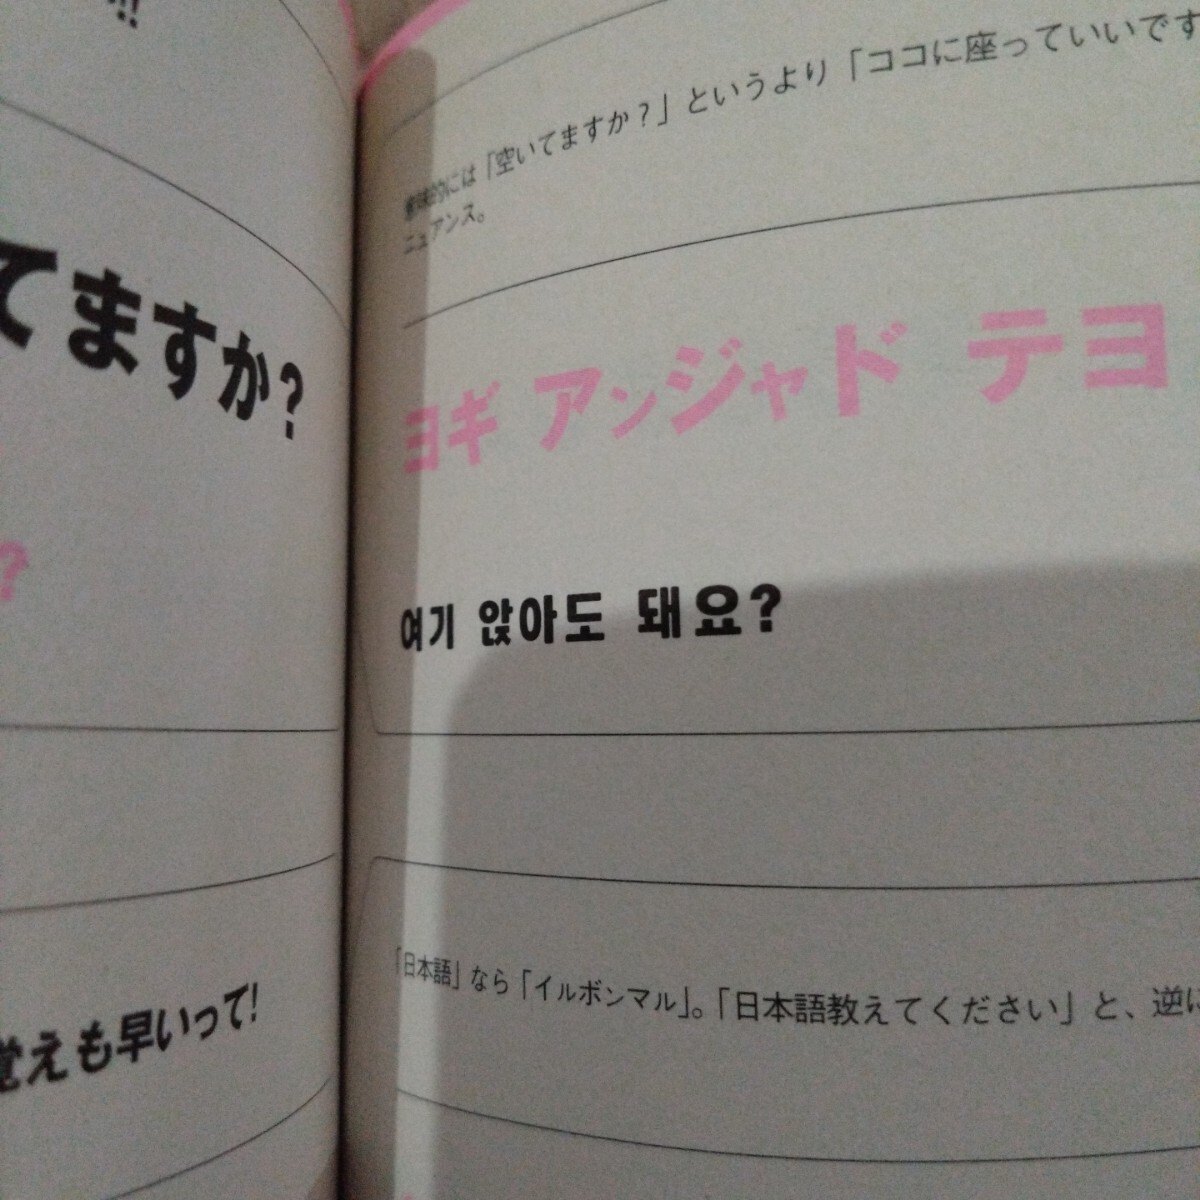 !!
てますか?
?
覚えも早いって!
意味的には「空いてますか？」というより「ココに座っていいです
ニュアンス。
ヨギ アンジャド テヨ
여기 앉아도 돼요?
「日本語」なら「イルボンマル」。「日本語教えてください」と、逆に